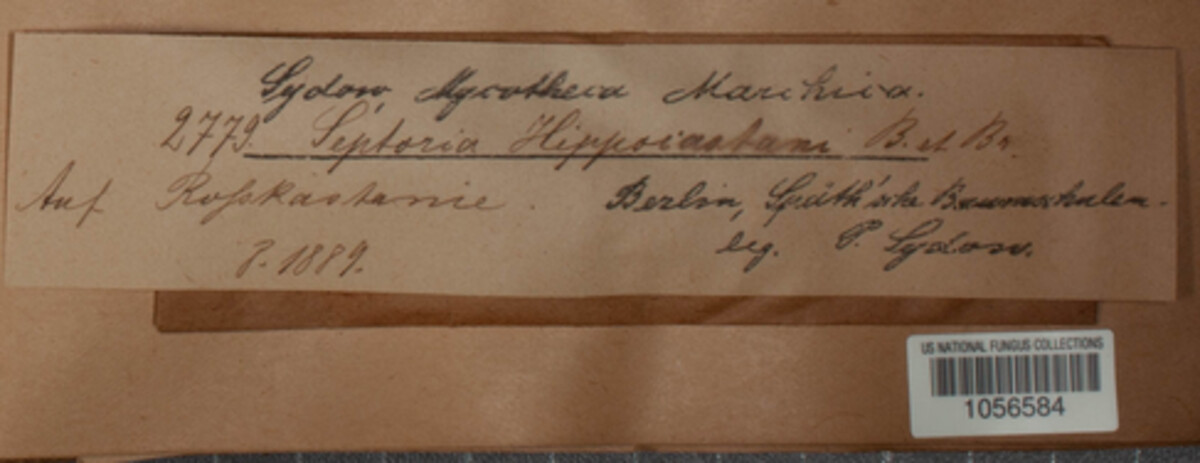 Sydow, Mycotheca Marchica.
2779. Septoria Hippocastani B. et Br.
Auf Roßkastanie. Berlin, Späth'sche Baumschulen.
8. 1889. leg. P. Sydow.
US NATIONAL FUNGUS COLLECTIONS
1056584